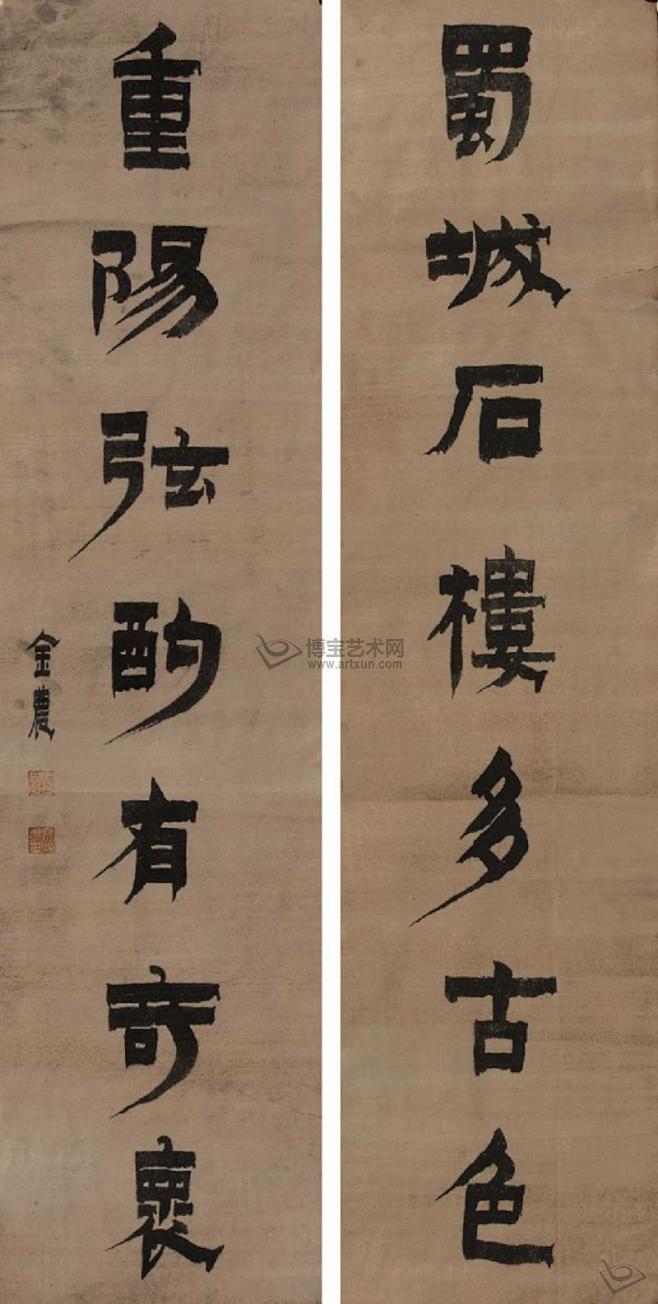 蜀城石樓多古色
重陽弦酌有奇裏
金農
博宝艺术网
www.artxun.com